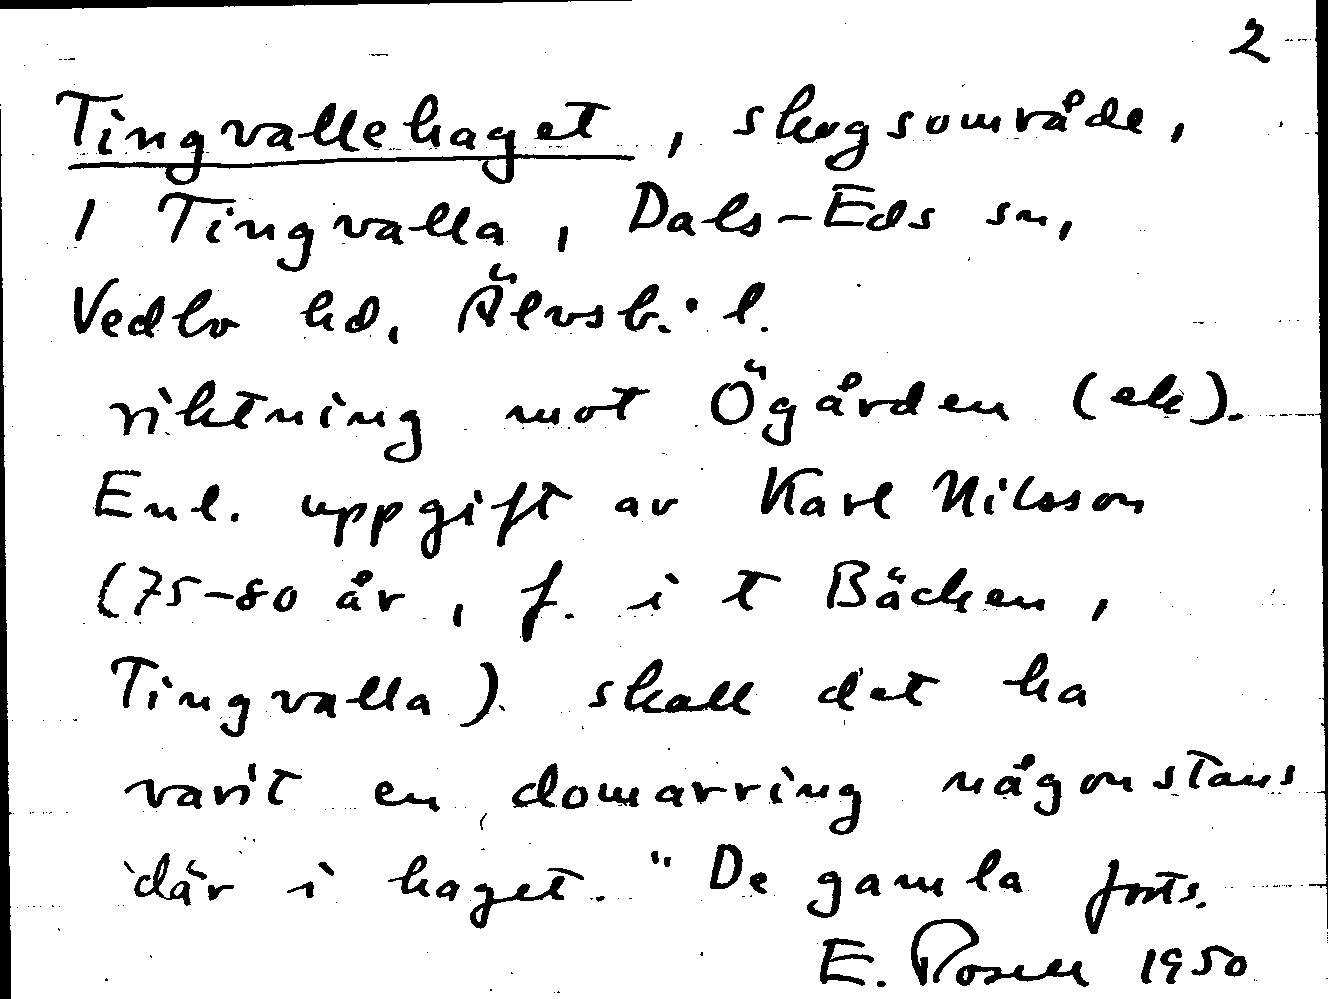 2
Tingvallehaget, skogsområde,
1 Tingvalla, Dals-Eds sn,
Vedbo hd, Älvsb. l.
riktning mot Ögården (ek).
Enl. uppgift av Karl Nilsson
(75-80 år, f. i t Bäcken,
Tingvalla) skall det ha
varit en domarring någonstans
där i haget. "De gamla forts.
E. Rosell 1950